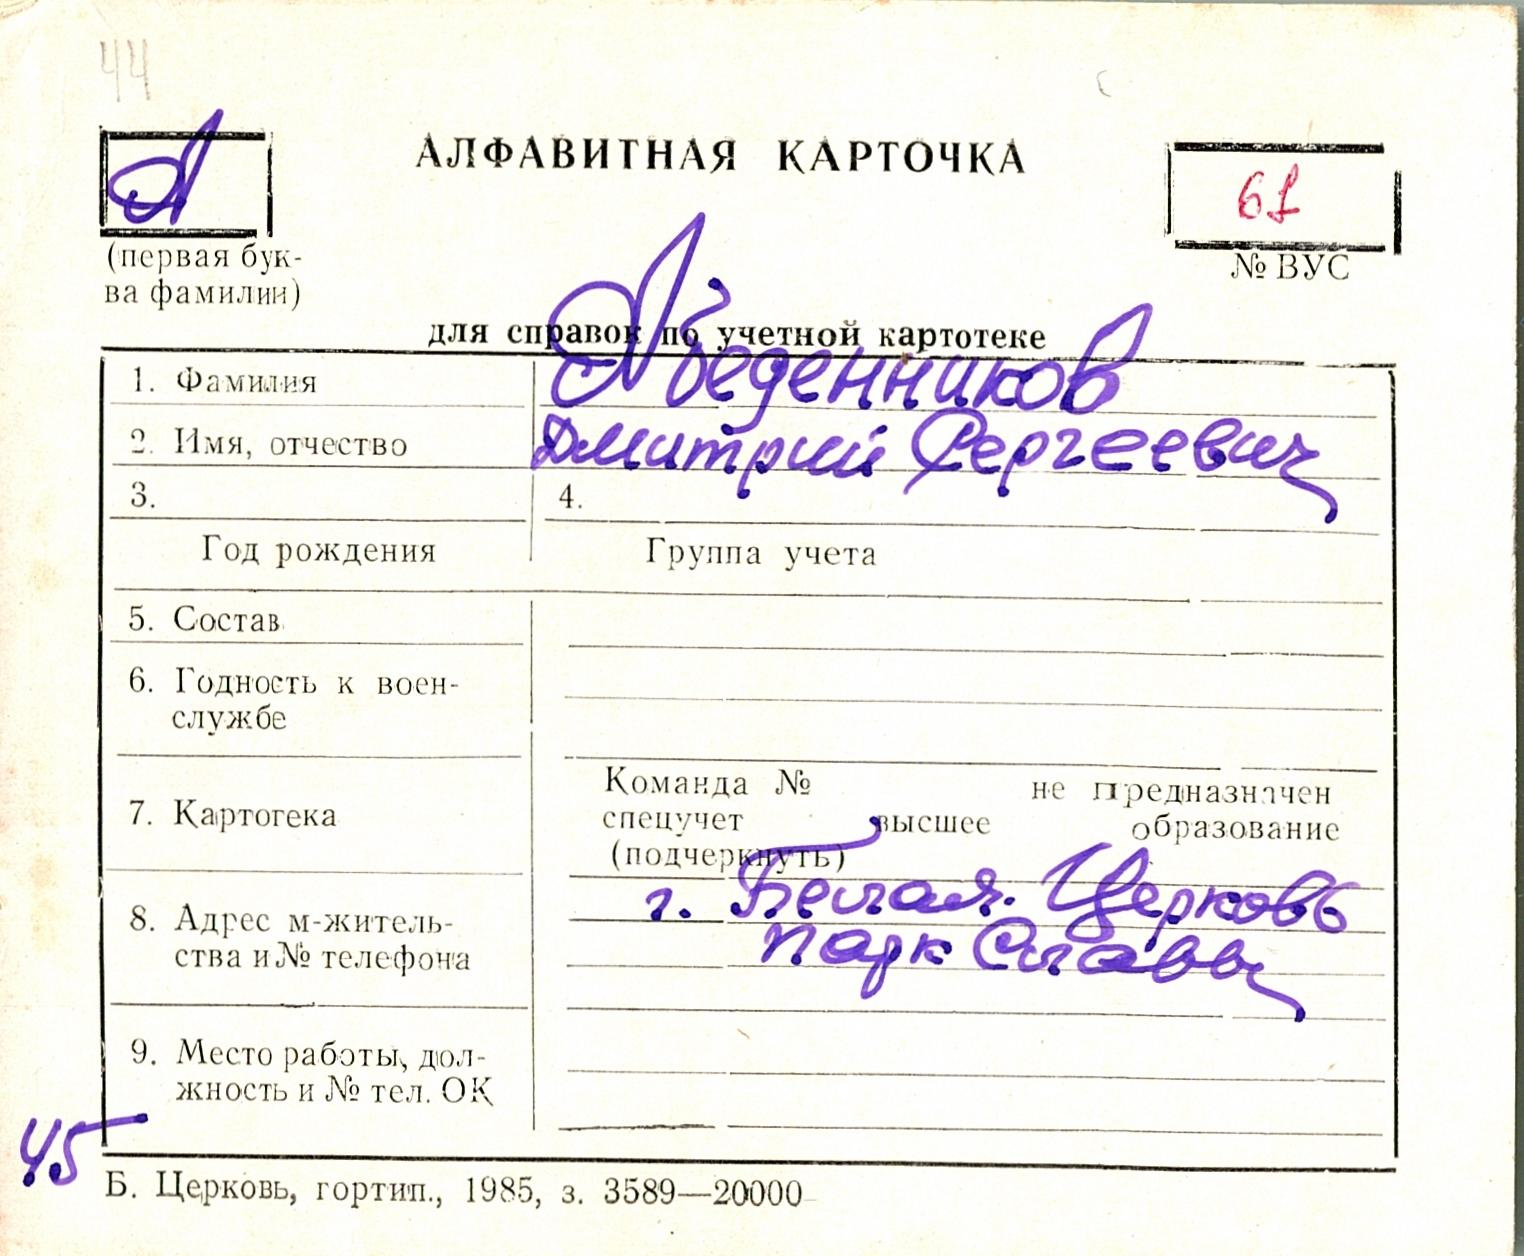 44
А
АЛФАВИТНАЯ КАРТОЧКА
61
(первая бук-
ва фамилии)
№ ВУС
для справок по учетной картотеке
1. Фамилия Абеденников
2. Имя, отчество Дмитрий Сергеевич
3. 4.
Год рождения Группа учета
5. Состав
6. Годность к воен-
службе
7. Картотека
Команда № не предназначен
спецучет высшее образование
(подчеркнуть)
8. Адрес м-житель-
ства и № телефона
г. Белая Церковь
парк Славы
9. Место работы, дол-
жность и № тел. ОК
45
Б. Церковь, гортип., 1985, з. 3589—20000